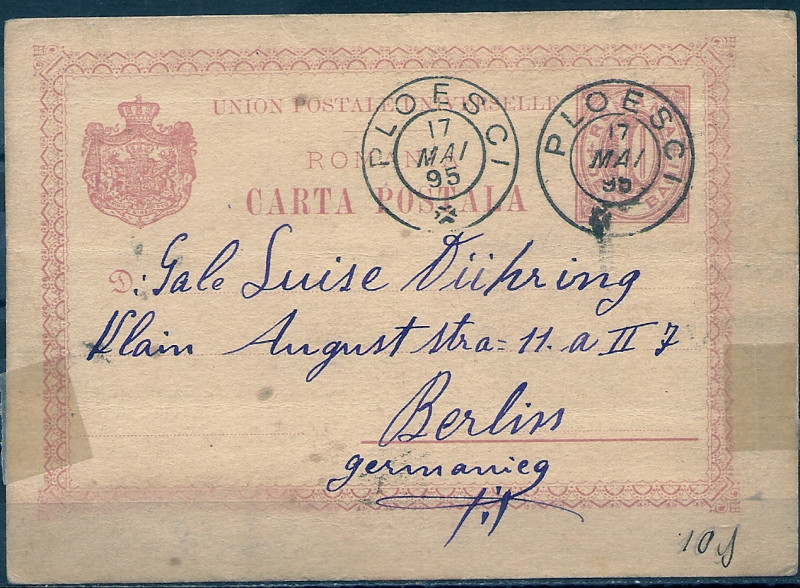 UNION POSTALE UNIVERSELLE
ROMANIA
CARTA POSTALA
PLOESCI
17
MAI
95
PLOESCI
17
MAI
95
10
BANI
BAILL
D: Gale Luise Dühring
Klain August stra= 11. a II 7
Berlin
germanieg
10